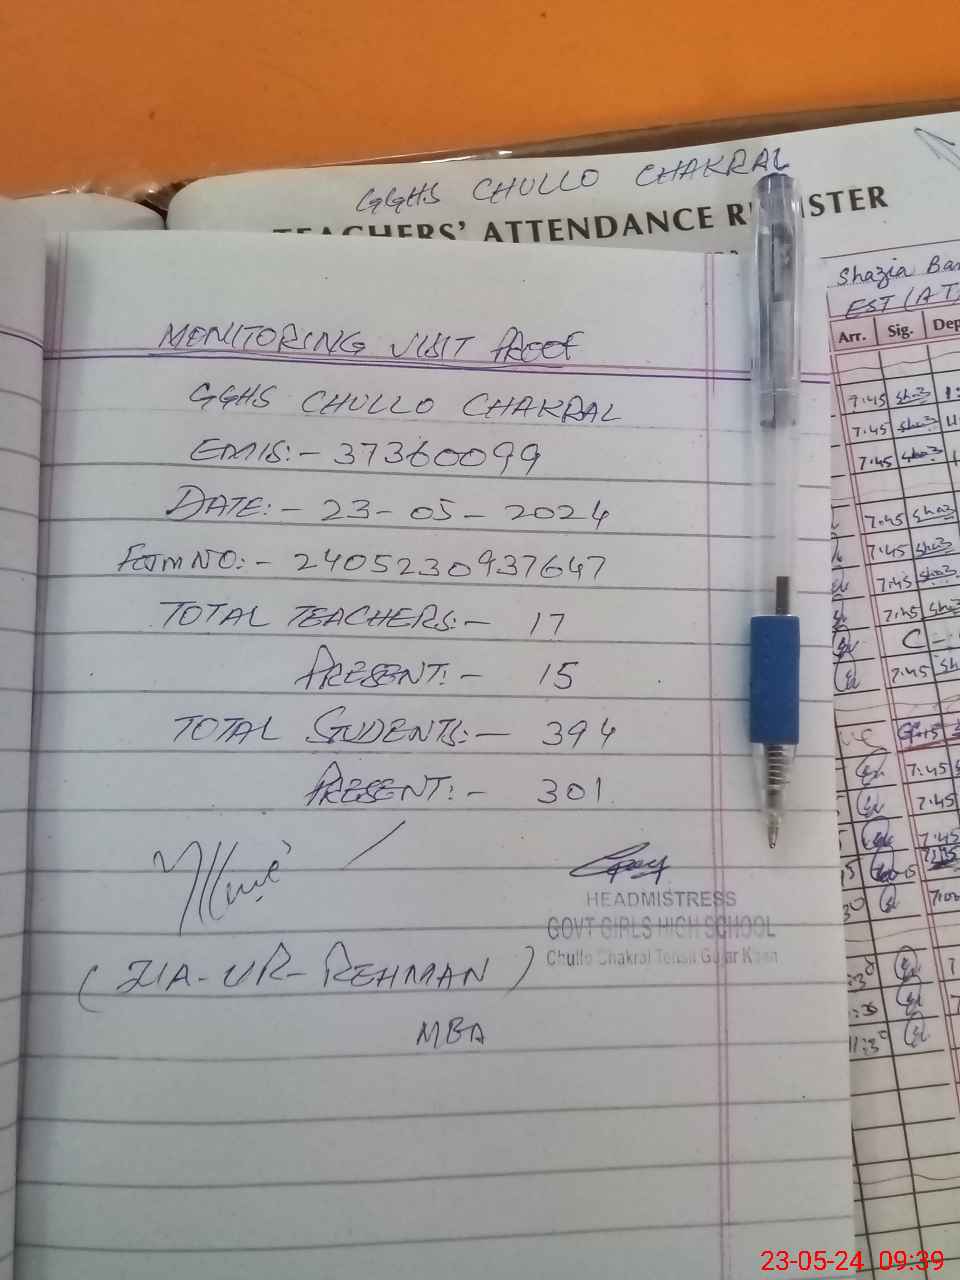 GGHS CHULLO CHAKRAL
TEACHERS' ATTENDANCE REGISTER
MONITORING VISIT PROOF
GGHS CHULLO CHAKRAL
EMIS:- 37360099
DATE:- 23-05-2024
Form NO:- 2405230937647
TOTAL TEACHERS:- 17
PRESENT:- 15
TOTAL STUDENTS:- 394
PRESENT:- 301
HEADMISTRESS
GOVT GIRLS HIGH SCHOOL
Chullo Chakral Tehsil Gujar Khan
(ZIA-UR-REHMAN)
MBA
Shazia
EST (AT
Arr. Sig. Dep
7:45
7:45
7:45
7:45
7:45
7:45
7:45
C
7:45
7:45
7:45
7:45
23-05-24 09:39